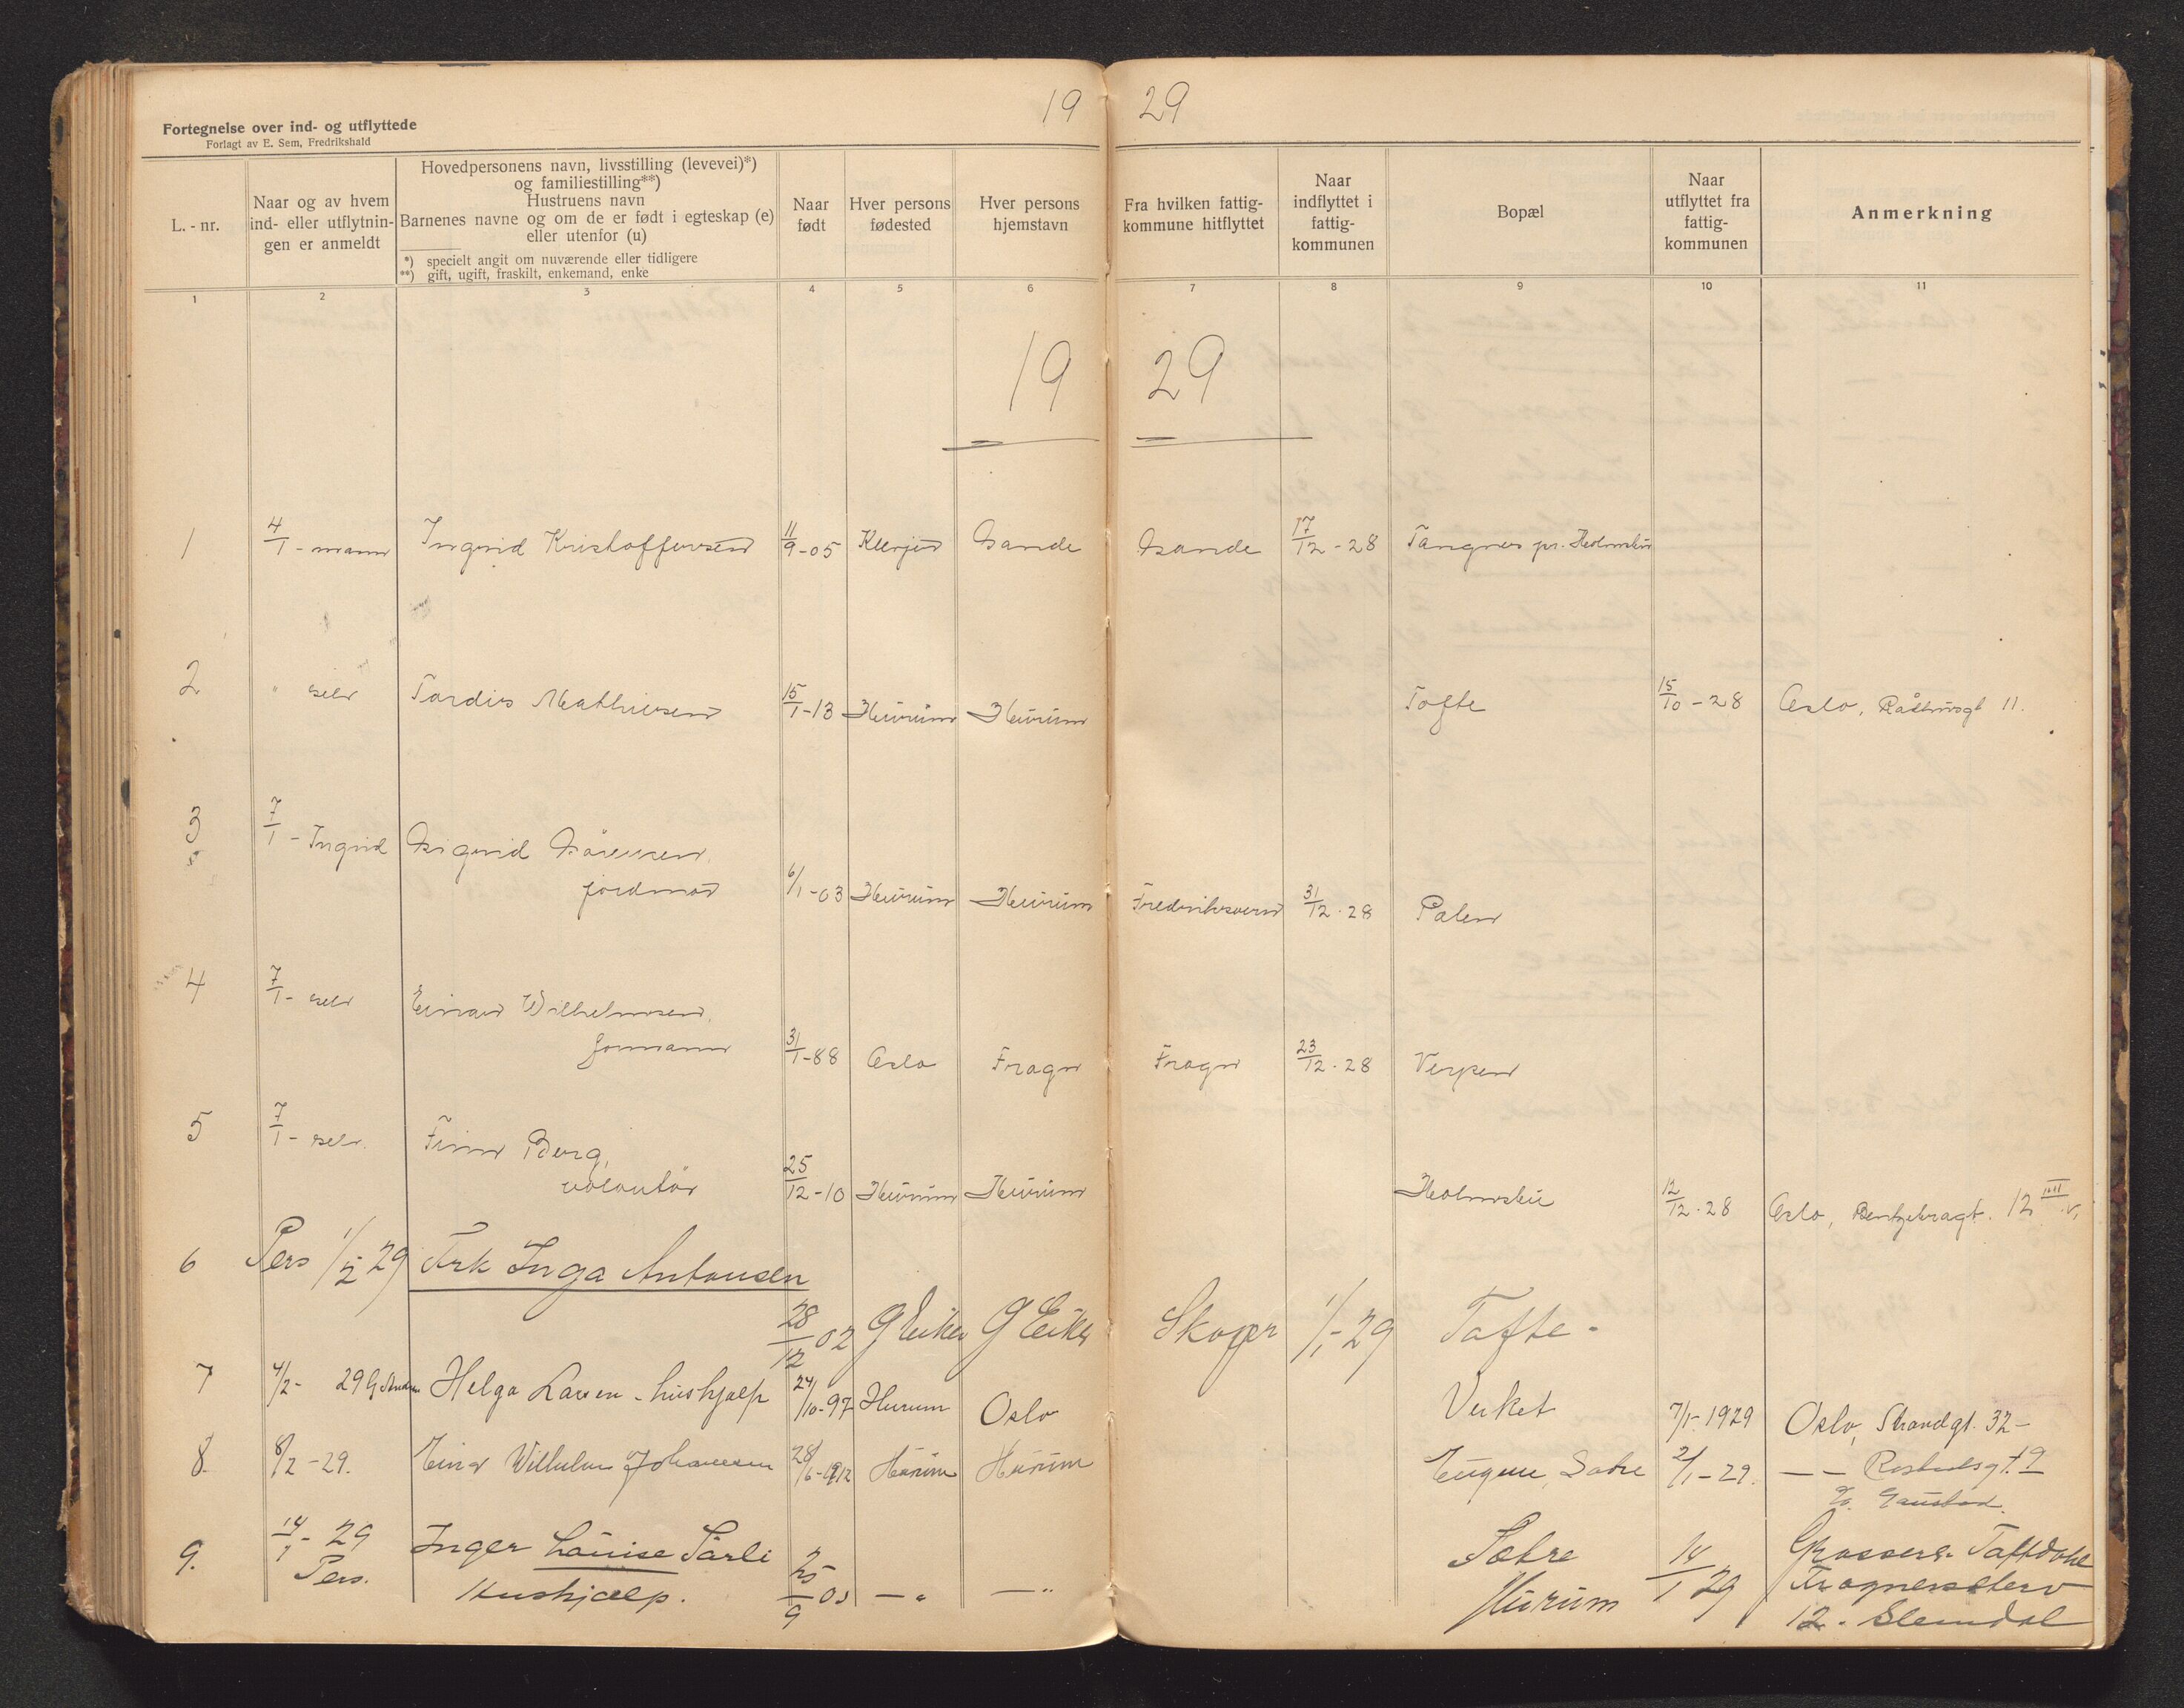 19 29
Fortegnelse over ind- og utflyttede
Forlagt av E. Sem, Fredrikshald
L. - nr.
Naar og av hvem
ind- eller utflytnin-
gen er anmeldt
Hovedpersonens navn, livsstilling (levevei)*)
og familiestilling**)
Hustruens navn
Barnenes navne og om de er født i egteskap (e)
eller utenfor (u)
*) specielt angit om nuværende eller tidligere
**) gift, ugift, fraskilt, enkemand, enke
Naar
født
Hver persons
fødested
Hver persons
hjemstavn
Fra hvilken fattig-
kommune hitflyttet
Naar
indflyttet i
fattig-
kommunen
Bopæl
Naar
utflyttet fra
fattig-
kommunen
Anmerkning
1 2 3 4 5 6 7 8 9 10 11
19 29
1 4/1 - mann Ingrid Kristoffersen 11/9-05 Sande Sande 17/12-28 Tangnes pr. Holmsbu
2 " selv Tordis Mathiesen 15/1-13 Hurum Hurum Tofte 15/10-28 Oslo, Rådhusgt 11.
3 7/1 - Ingrid Sigrid Sørensen,
jordmor 6/1-03 Hurum Hurum Fredriksvern 31/12.28 Palen
4 7/1 - selv Einar Wilhelmsen,
formann 31/1-88 Oslo Frogn Frogn 23/12.28 Verpen
5 7/1 - selv. Finn Berg,
volontør 25/12-10 Hurum Hurum Holmsbu 12/12.28 Oslo, Bentsebragt. 12
6 Pers 1/2 29 Frk Inga Antonsen
28/12 02 G Eiker G Eiker Skoger 1/1-29 Tofte -
7 4/2 - 29 Helga Larsen - hushjælp 24/10-97 Hurum Oslo Verket 7/1-1929 Oslo, Strandgt. 32-
8. 8/2 -29. Einar Wilhelm Johansen 28/6-1912 Hurum Hurum Sætre 2/1-29. — —
9. 14/1 - 29 Inger Louise Sørli
Pers. Hushjælp. 25/9 03 — " — " Sætre
Hurum 14/1 29 Grosserer
12 - Slemdal